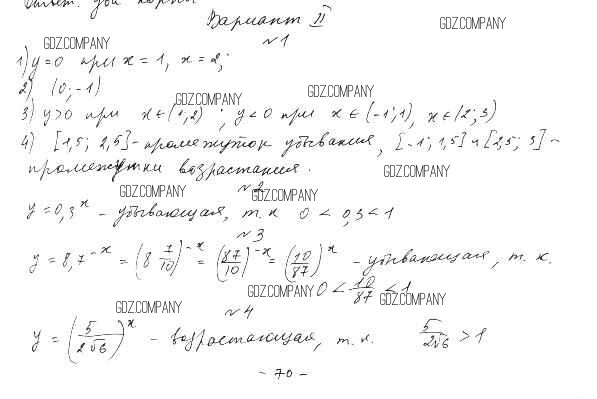 Ответ: два корня
Вариант II
GDZ.COMPANY
GDZ.COMPANY
№1
1) y=0 при x = 1, x = 2;
2) (0; -1)
GDZ.COMPANY
GDZ.COMPANY
3) y>0 при x∈(1;2); y<0 при x∈(-1;1), x∈(2;3)
4) [1,5; 2,5] - промежуток убывания, [-1; 1,5] и [2,5; 3] -
промежутки возрастания.
GDZ.COMPANY
GDZ.COMPANY
№2
GDZ.COMPANY
y = 0,3^x - убывающая, т.к 0 < 0,3 < 1
№3
y = 8,7^-x = (8 7/10)^-x = (87/10)^-x = (10/87)^x - убывающая, т.к.
GDZ.COMPANY
0 < 10/87 < 1
GDZ.COMPANY
GDZ.COMPANY
№4
y = (5/2√6)^x - возрастающая, т.к. 5/2√6 > 1
- 70 -